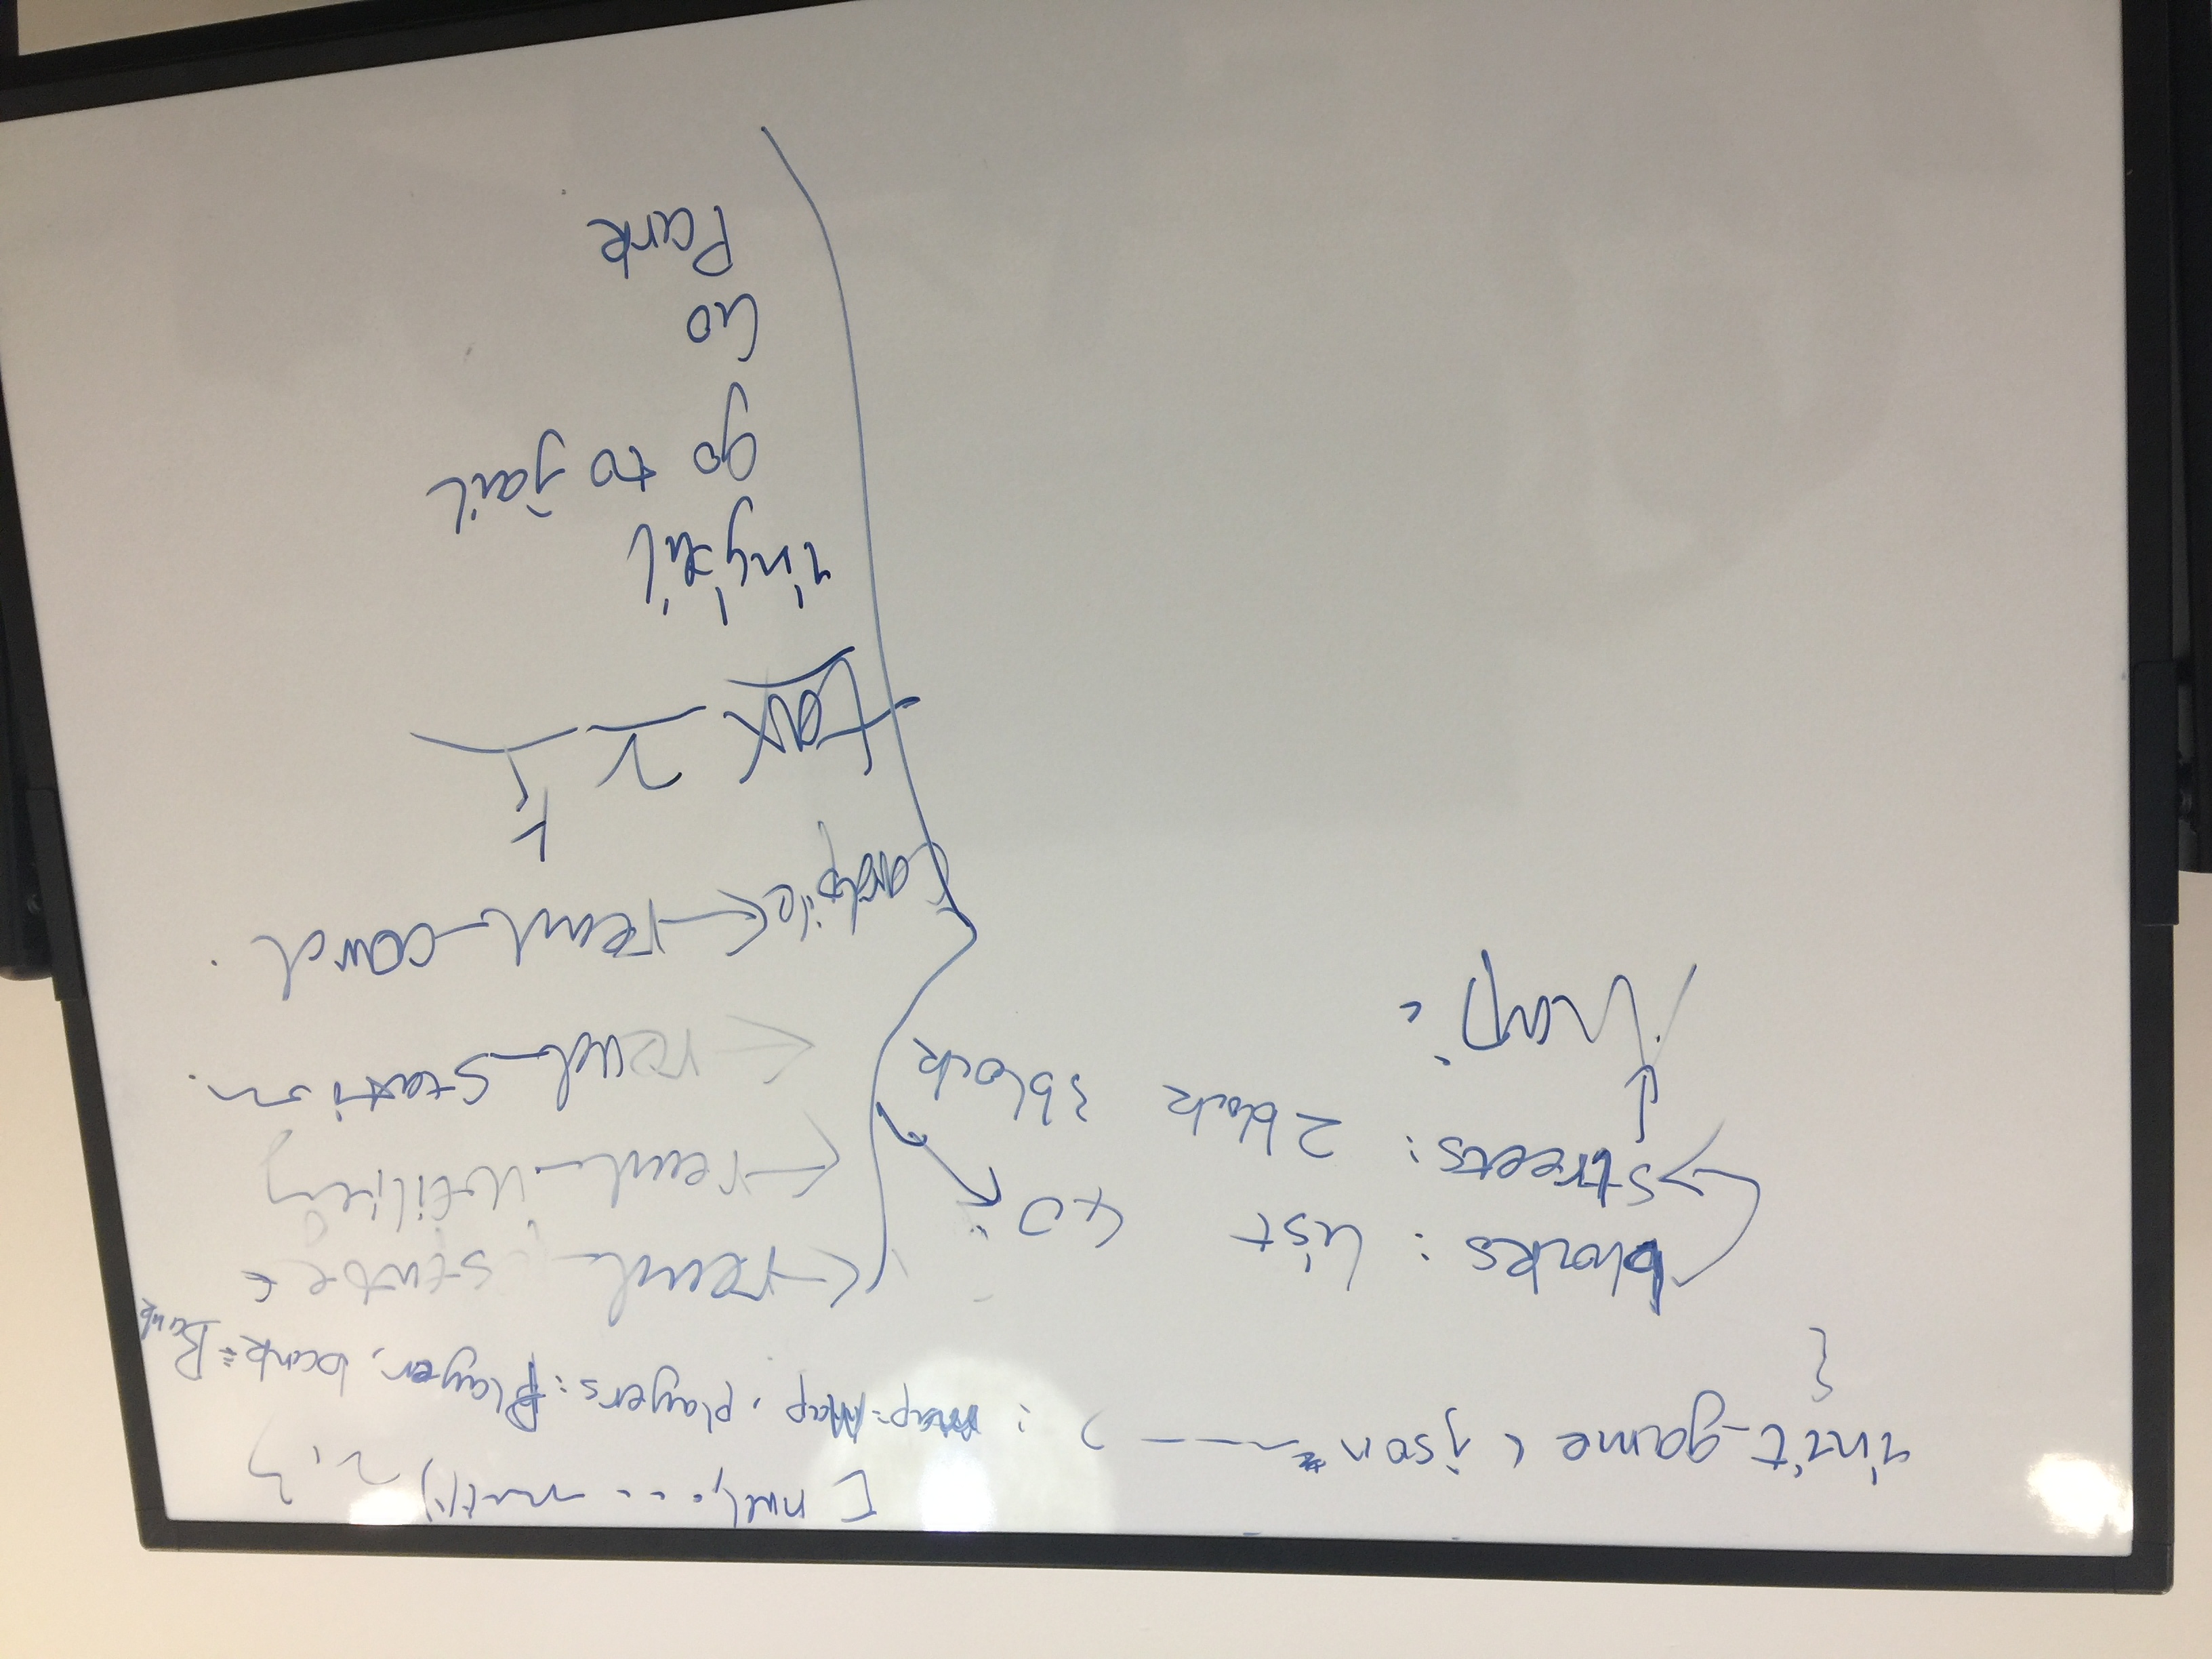 [ null, ...
init_game ( json ) : map: Map , players: Player, bank: Bank
{
blocks : list 40
streets : 2 block 3 block
Map :
← read_ state
← read_utility
← read_station.
Cardpile ← read_card .
tax 2
injail
go to jail
Go
Park